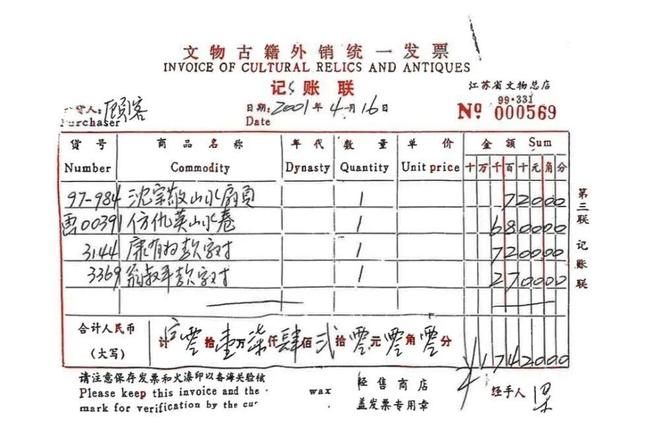 文物古籍外销统一发票
INVOICE OF CULTURAL RELICS AND ANTIQUES
记 账 联
江苏省文物总店
货人：顾客 日期：2001年4月16日 99·331
Purchaser Date № 000569
货号 商品名称 年代 数量 单价 金额 Sum
Number Commodity Dynasty Quantity Unit price 十万千百十元角分
97-984 沈宗敬山水扇页 1 72000
曹00391 仿仇英山水卷 1 680000
3144 康有为款字对 1 720000
3369 翁叔平款字对 1 270000
合计人民币
(大写) 计 零拾壹万柒仟肆佰贰拾零元零角零分 ¥1742000
请注意保存发票和火漆印以备海关验核
Please keep this invoice and the wax 经售商店 经手人 梁
mark for verification by the cu 盖发票专用章
第三联 记账联